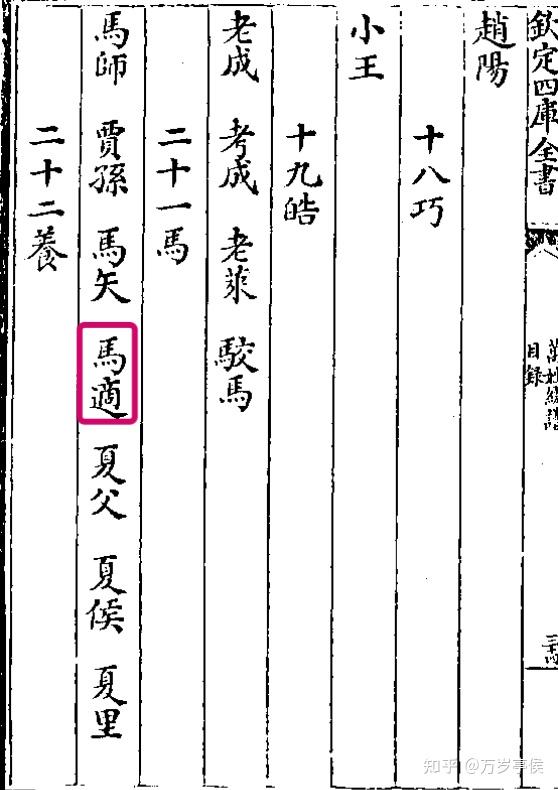 欽定四庫全書
萬姓統譜
目錄
趙陽
十八巧
小王
十九皓
老成 考成 老萊 駮馬
二十一馬
馬師 賈孫 馬矢 馬適 夏父 夏侯 夏里
二十二養
知乎 @万岁亭侯